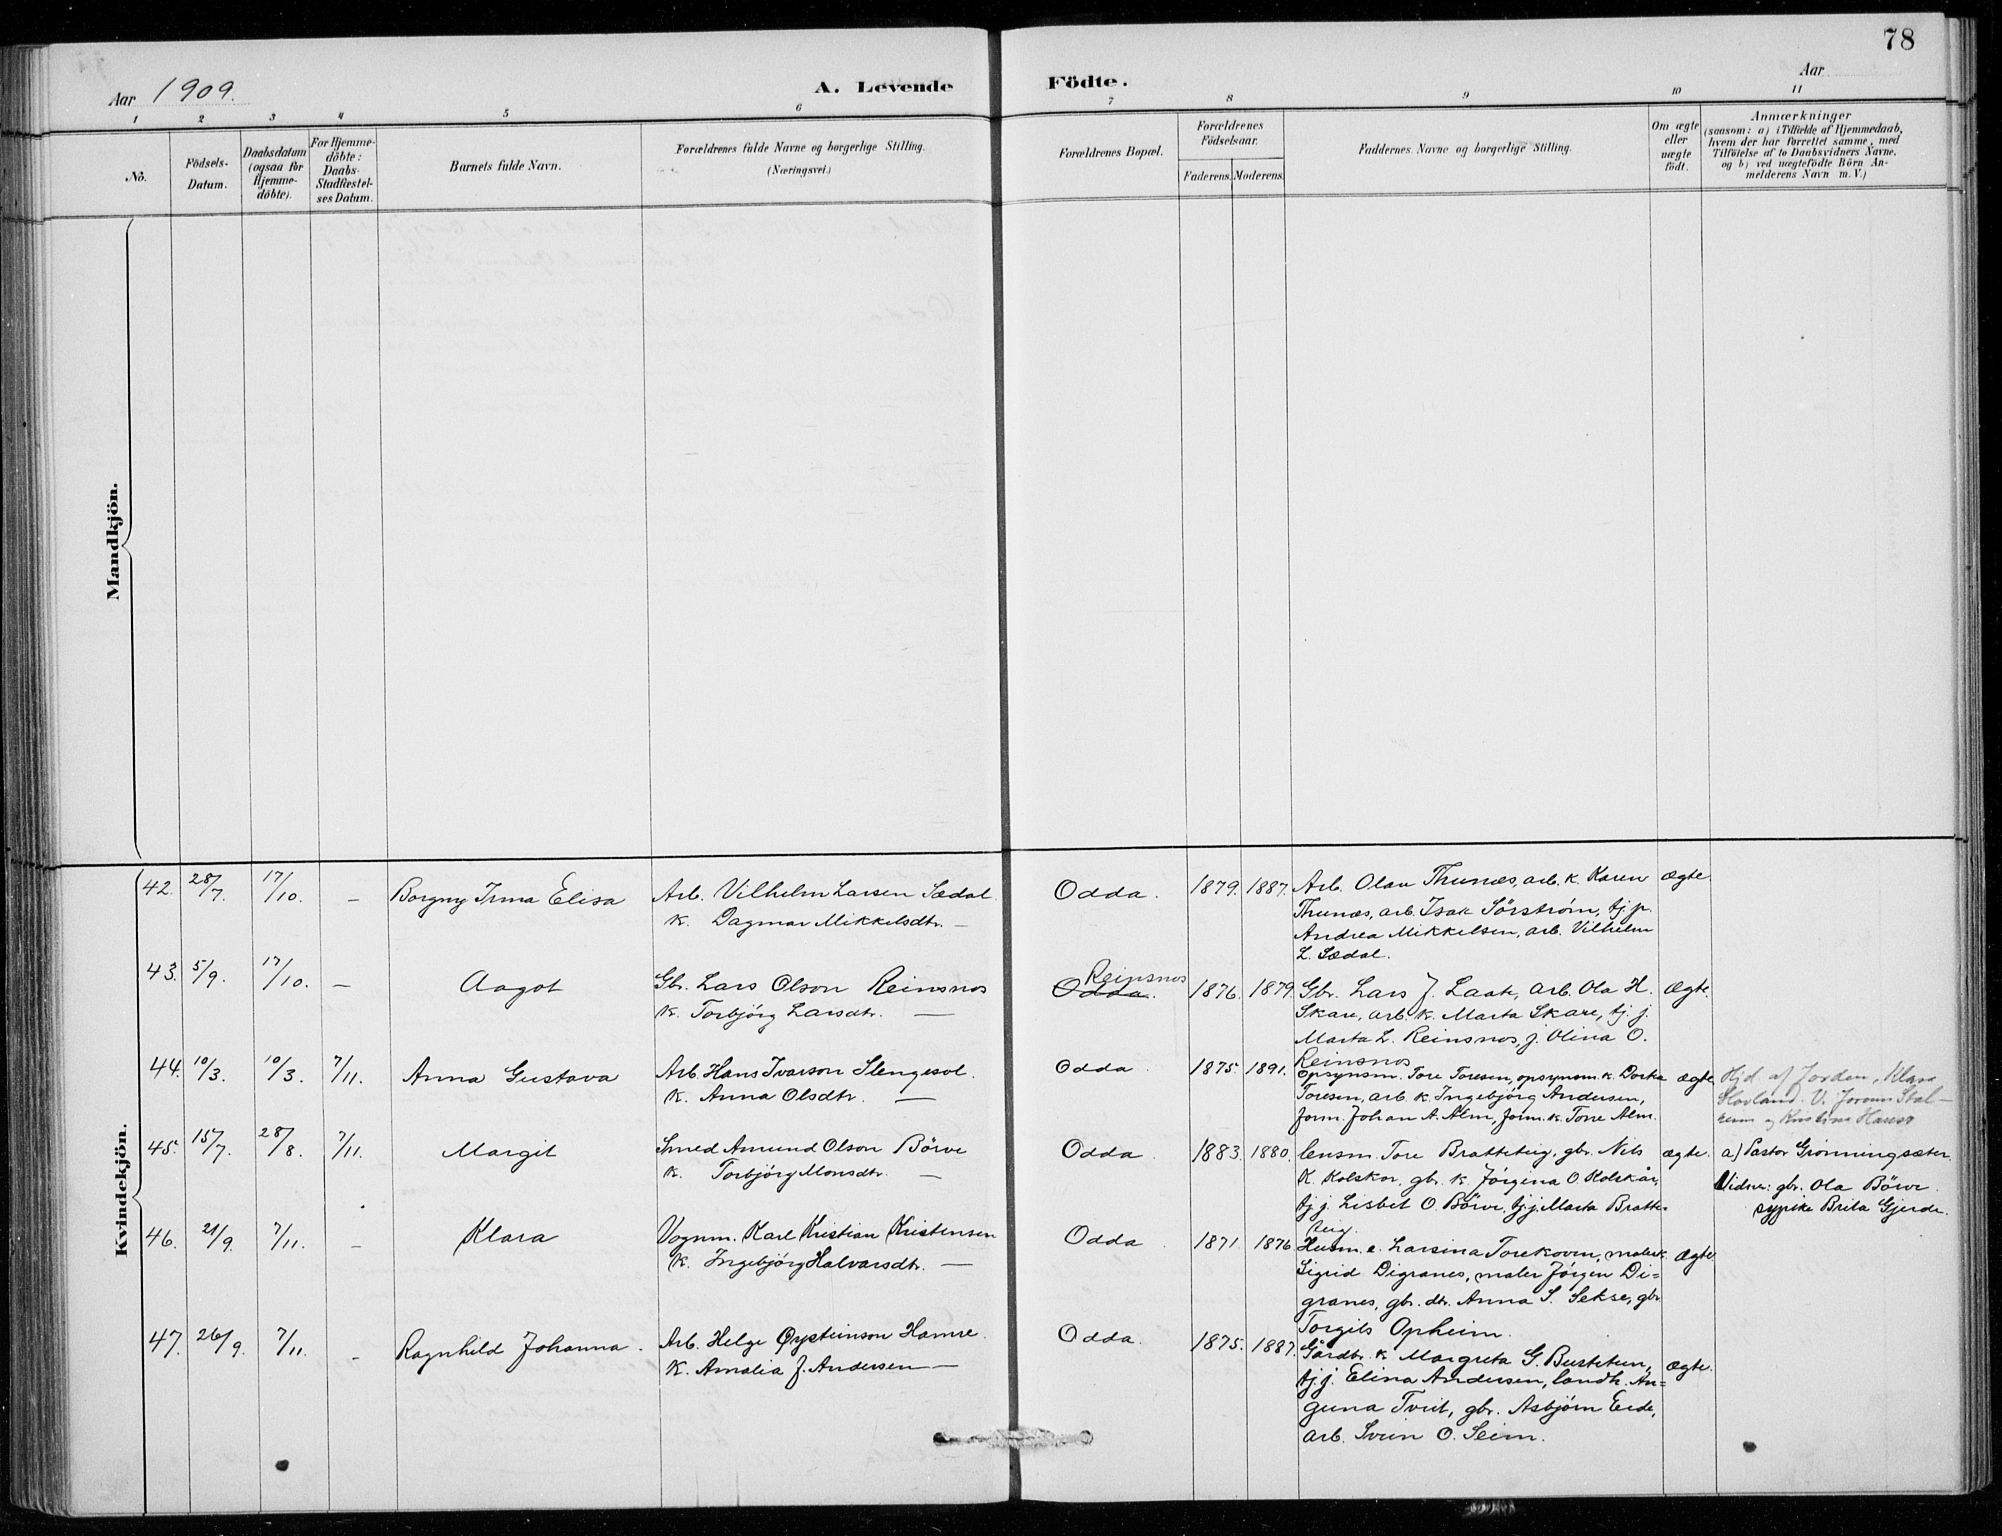 78
Aar 1909.
A. Levende Födte.
Aar
1 2 3 4 5 6 7 8 9 10 11
No.
Födsels-
Datum.
Daabsdatum
(ogsaa for
Hjemme-
döbte).
For Hjemme-
döbte:
Daabs-
Stadfæstel-
ses Datum.
Barnets fulde Navn.
Forældrenes fulde Navne og borgerlige Stilling.
(Næringsvei.)
Forældrenes Bopæl.
Forældrenes
Födselsaar.
Faderens. Moderens.
Faddernes Navne og borgerlige Stilling.
Om ægte
eller
uægte
födt.
Anmærkninger
(saasom: a) i Tilfælde af Hjemmedaab,
hvem der har forrettet samme, med
Tilföielse af to Daabsvidners Navne,
og b) ved uægtefödte Börn An-
melderens Navn m. V.)
Mandkjön.
Kvindekjön.
42. 28/7. 17/10. — Borgny Irma Elisa
Arb. Vilhelm Larsen Sædal.
K. Dagmar Mikkelsdtr. —
Odda. 1879. 1887.
Arb. Olav Thunæs, arb. k. Karen
Thunæs, arb. Isak Sörström, tj. p.
Andrea Mikkelsen, arb. Vilhelm
L. Sædal.
ægte.
43. 5/9. 17/10. — Aagot
Gbr. Lars Olson Reinsnos
K. Torbjörg Larsdtr. —
Reinsnos
Odda. 1876. 1879.
Gbr. Lars J. Laate, arb. Ola H.
Skare, arb. k. Marta Skare, tj. j.
Marta L. Reinsnos, j. Olina O.
Reinsnos
Ægte.
44. 10/3. 10/3. 7/11. Anna Gustava
Arb. Hans Ivarson Slengesol.
K. Anna Olsdtr. —
Odda. 1875. 1891.
opsynsm. Tore Toresen, opsynsm. k. Dorka
Toresen, arb. k. Ingebjörg Andersen,
form. Johan A. Alm, form. k. Tone Alm.
ægte.
Hjd. af Jordm. Klara
Hovland. V. Jorunn Stal-
heim og Kristine Hauso
45. 15/7. 28/8. 7/11. Margit
Smed Amund Olson Börve
K. Torbjörg Monsdtr. —
Odda. 1883. 1880.
lensm. Tore Bratteteig, gbr. Nils
K. Kolskor, gbr. k. Jörgina O. Kolskår,
tj. j. Lisbet O. Börve, tj. j. Marta Bratte-
teig.
ægte.
a) Pastor Grönningsæter.
Vidne: gbr. Ola Börve.
sypike Brita Gjerde.
46. 21/9. 7/11. — Klara
Vognm. Karl Kristian Kristensen
K. Ingebjörg Halvarsdtr. —
Odda. 1871 1876
Husm. e. Larsina Torekoven, maler k.
Sigrid Digranes, maler Jörgen Di-
granes, gbr. dtr. Anna S. Sekse, gbr.
Torgils Opheim.
Ægte.
47. 26/9. 7/11. — Ragnhild Johanna.
Arb. Helge Øysteinson Hamre.
K. Amalia J. Andersen —
Odda. 1875. 1887.
Gårdbr. k. Margreta G. Bustetun,
tj. j. Elina Andersen, landh. An-
guna Tveit, gbr. Asbjörn Eide,
arb. Svein O. Seim.
ægte.